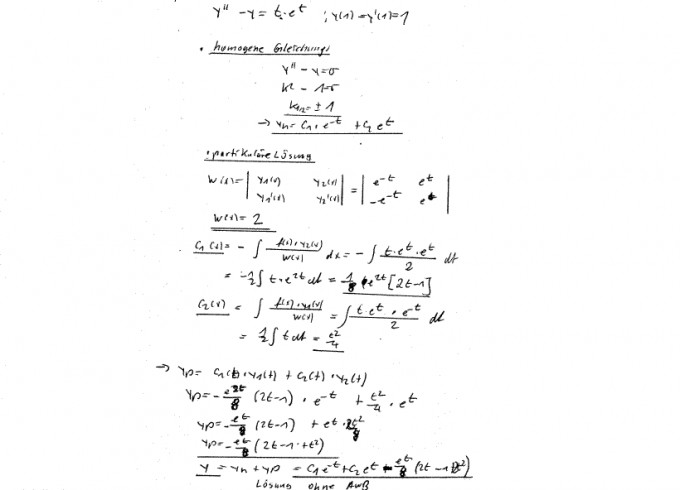 y'' - y = t · e^t ; y(1) = y'(1) = 1
· homogene Gleichung:
y'' - y = 0
k² - 1 = 0
k₁,₂ = ± 1
→ yh = C₁ · e^-t + C₂ e^t
· partikuläre Lösung
W(x) = | y₁(x) y₂(x) | = | e^-t e^t |
| y₁'(x) y₂'(x) | | -e^-t e^t |
W(x) = 2
C₁(x) = - ∫ f(x) · y₂(x) / W(x) dx = - ∫ t · e^t · e^t / 2 dt
= -1/2 ∫ t · e^2t dt = 1/8 e^2t [2t-1]
C₂(x) = ∫ f(x) · y₁(x) / W(x) = ∫ t · e^t · e^-t / 2 dt
= 1/2 ∫ t dt = t²/4
→ yp = C₁(t) · y₁(t) + C₂(t) · y₂(t)
yp = - e^2t/8 (2t-1) · e^-t + t²/4 · e^t
yp = - e^t/8 (2t-1) + e^t · 2t²/8
yp = - e^t/8 (2t-1 + t²)
y = yh + yp = C₁ e^-t + C₂ e^t - e^t/8 (2t-1 2t²)
Lösung ohne AWB